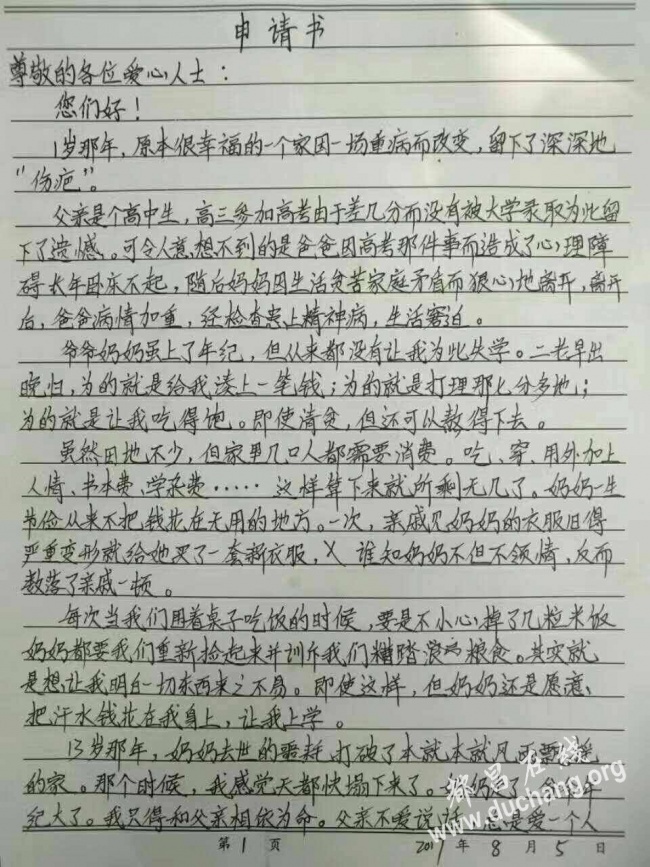 申请书
尊敬的各位爱心人士：
您们好！
1岁那年，原本很幸福的一个家因一场重病而改变，留下了深深地
“伤疤”。
父亲是个高中生，高三参加高考由于差几分而没有被大学录取为此留
下了遗憾。可令人意想不到的是爸爸因高考那件事而造成了心理障
碍长年卧床不起，随后妈妈因生活贫苦家庭矛盾而狠心地离开，离开
后，爸爸病情加重，经检查患上精神病，生活窘迫。
爷爷奶奶虽上了年纪，但从来都没有让我为此失学。二老早出
晚归，为的就是给我凑上一笔钱；为的就是打理那七分多地；
为的就是让我吃得饱。即使清贫，但还可以熬得下去。
虽然田地不少，但家里几口人都需要消费。吃、穿、用外加上
人情、书本费、学杂费……这样算下来就所剩无几了。奶奶一生
节俭从来不把钱花在无用的地方。一次，亲戚见奶奶的衣服旧得
严重变形就给她买了一套新衣服，谁知奶奶不但不领情，反而
数落了亲戚一顿。
每次当我们用着桌子吃饭的时候，要是不小心掉了几粒米饭
奶奶都要我们重新捡起来并训斥我们糟踏浪费粮食。其实就
是想让我明白一切东西来之不易。即使这样，但奶奶还是愿意
把汗水钱花在我身上，让我上学。
13岁那年，奶奶去世的噩耗，打破了本就本就风雨飘摇
的家。那个时候，我感觉天都快塌下来了。奶奶走了，爷爷年
纪大了。我只得和父亲相依为命。父亲不爱说话，总是爱一个人
都昌在线
www.duchang.org
第 1 页 2017 年 8 月 5 日